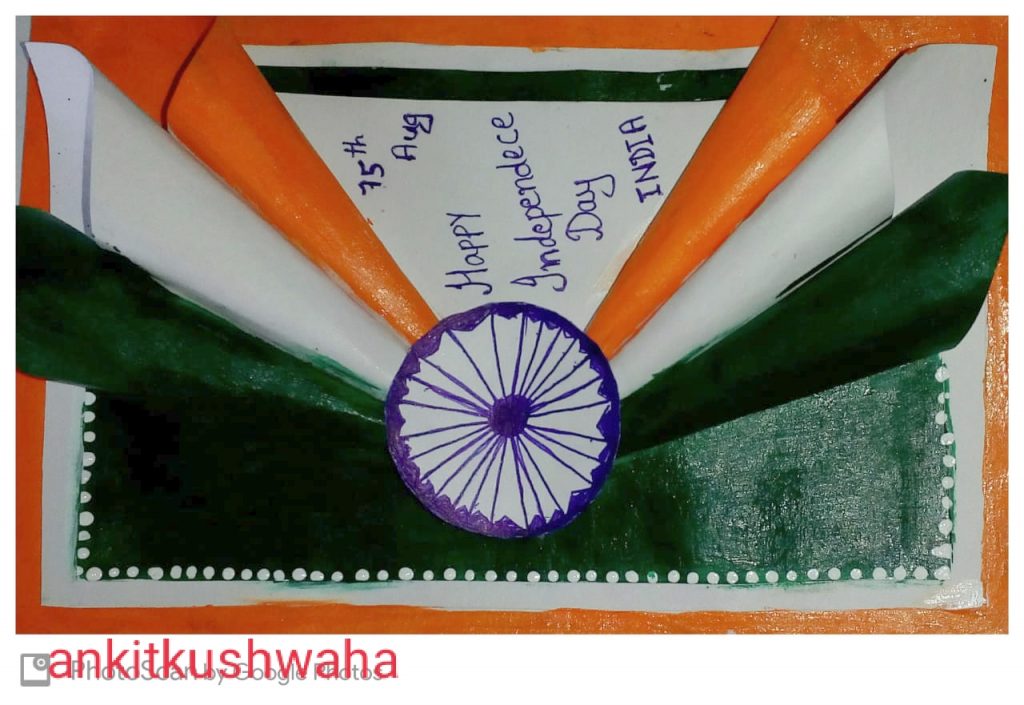 15th
Aug
Happy
Independece
Day
INDIA
ankitkushwaha
PhotoScan by Google Photos